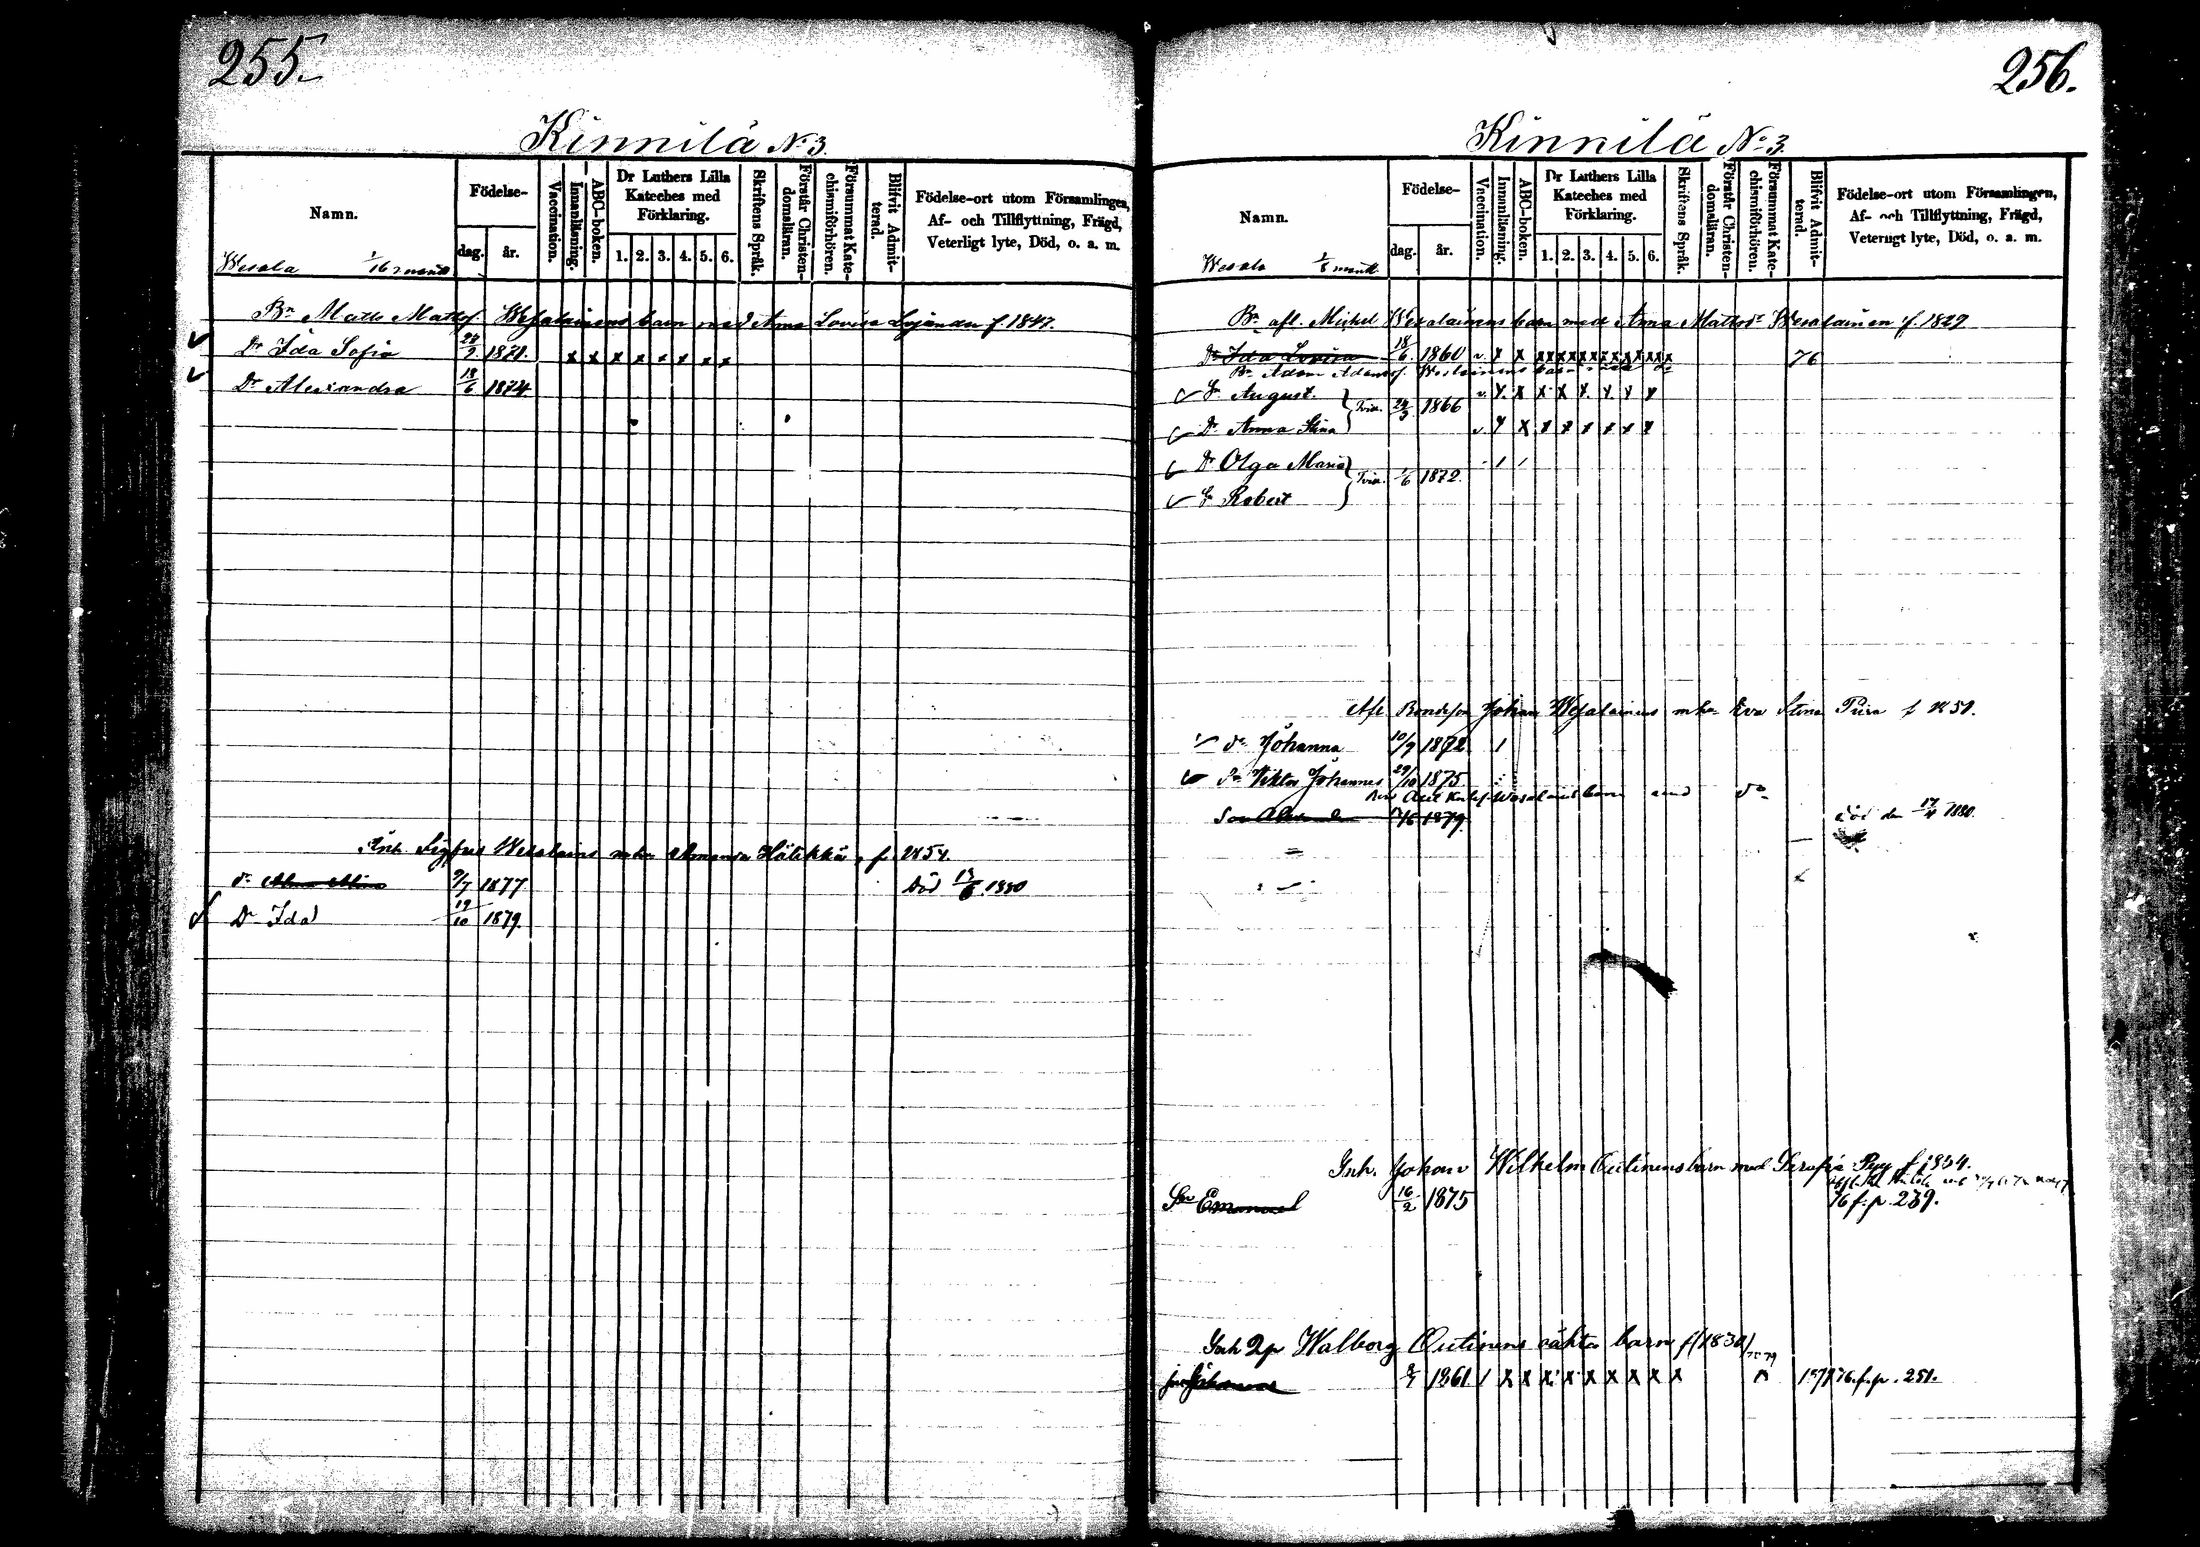 255.
Kinnilä No 3.
Namn.
Födelse-
dag. år.
Vaccination.
Innanläsning.
ABC-boken.
Dr Luthers Lilla Kateches med Förklaring.
1. 2. 3. 4. 5. 6.
Skriftens Språk.
Förstår Christendomsläran.
Försummat Katechismiförhören.
Blifvit Admitterad.
Födelse-ort utom Församlingen,
Af- och Tillflyttning, Frägd,
Veterligt lyte, Död, o. a. m.
Wesala 1/16 mantl
Bn Matts Mattss. Wesalainens barn med Anna Lovisa f. 1847.
Dr Ida Sofia 1871. x x x x x x x x
Dr Alexandra 13/6 1874
Inh. Sigfrid Wesalains mhu Amanda Hätikkä, f 1854.
9/7 1877 Död 13/6 1880
Dr Ida 19/10 1879.
256.
Kinnilä No 3.
Namn.
Födelse-
dag. år.
Vaccination.
Innanläsning.
ABC-boken.
Dr Luthers Lilla Kateches med Förklaring.
1. 2. 3. 4. 5. 6.
Skriftens Språk.
Förstår Christendomsläran.
Försummat Katechismiförhören.
Blifvit Admitterad.
Födelse-ort utom Församlingen,
Af- och Tillflyttning, Frägd,
Veterligt lyte, Död, o. a. m.
Wesala 1/8 mantl.
Bn afl. Michel Wesalainens barn med Anna Mattsdr Wesalainen f. 1829
Dr Ida Lovisa 18/6 1860 v. x x x x x x x x x x x x x x 76
Bn Adam Adamss. Wesalainens barn med do
Sn August. Tvil. 24/3 1866 v. x x x x x x x x
Dr Anna Stina v x x x x x x x x
Dr Olga Maria Tvil. 1/6 1872.
Sn Robert
Afl Bondeson Johan Wesalainens mhu Eva Stina f 1851.
dr Johanna 10/9 1872
sn Viktor Johannes 29/10 1875
barn med do
Son 1879. död den 17/4 1880.
Inh. Johan Wilhelm Outinens barn med Serafia Pyy f 1854.
Sn Emanuel 16/2 1875 76 f. p. 239.
Inh Qp Walborg Outinens oäkta barn f (1830)
1861 x x x x x x x x x 76. f. p. 251.